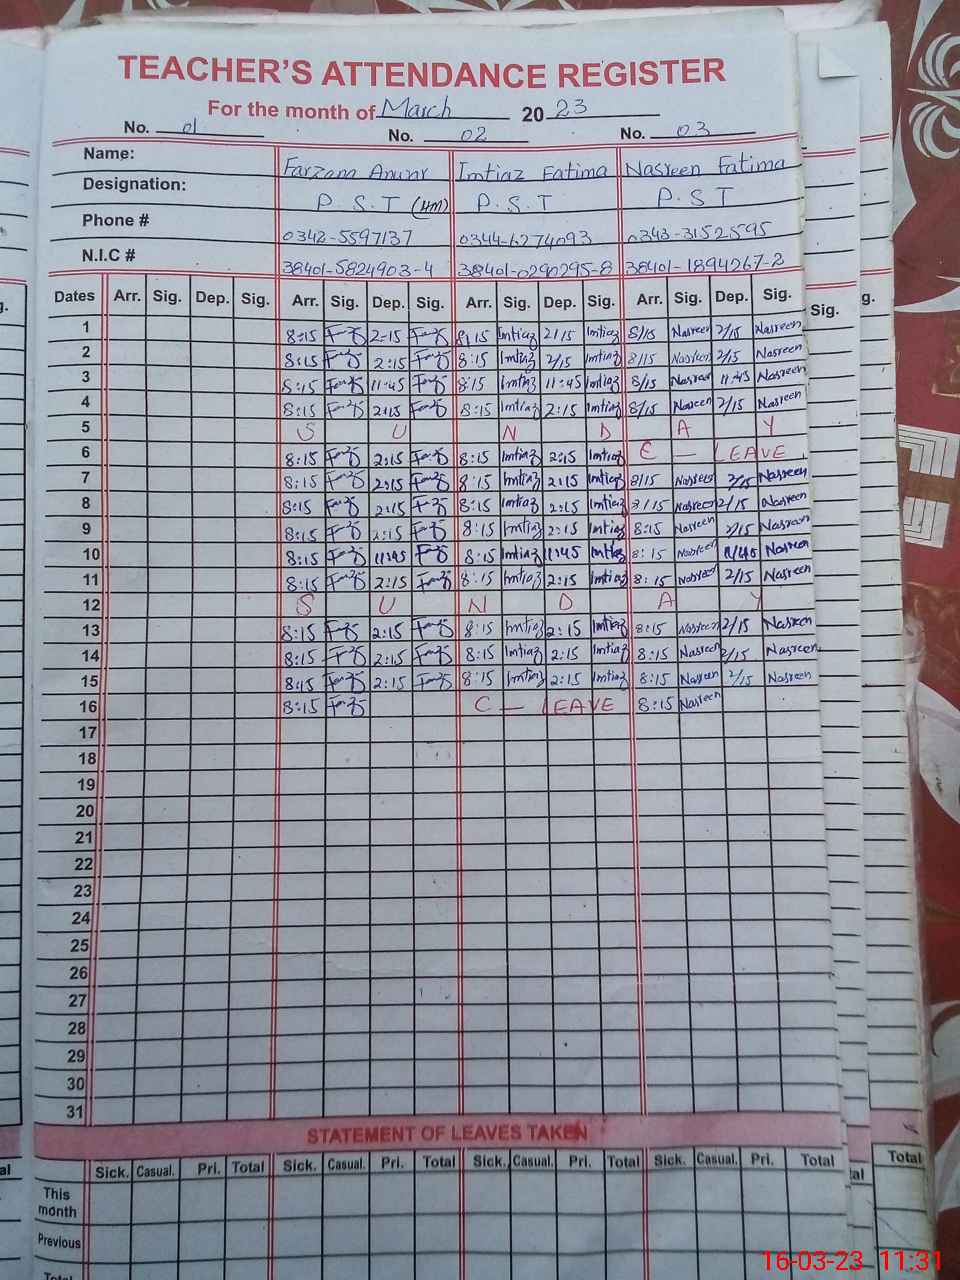 TEACHER'S ATTENDANCE REGISTER
For the month of March 2023
No. 01 No. 02 No. 03
Name: Farzana Anwar Imtiaz Fatima Nasreen Fatima
Designation: P.S.T (HM) P.S.T P.S.T
Phone # 0342-5597137 0344-6274093 0343-3152595
N.I.C # 38401-5824903-4 38401-0290295-8 38401-1894267-2
Dates Arr. Sig. Dep. Sig. Arr. Sig. Dep. Sig. Arr. Sig. Dep. Sig. Arr. Sig. Dep. Sig. Sig.
1 8:15 2:15 8:15 Imtiaz 2/15 Imtiaz 8/15 Nasreen 2/15 Nasreen
2 8:15 2:15 8:15 Imtiaz 2/15 Imtiaz 8/15 Nasreen 2/15 Nasreen
3 8:15 11:45 8:15 Imtiaz 11:45 Imtiaz 8/15 Nasreen 11:45 Nasreen
4 8:15 2:15 8:15 Imtiaz 2:15 Imtiaz 8/15 Nasreen 2/15 Nasreen
5 S U N D A Y
6 8:15 2:15 8:15 Imtiaz 2:15 Imtiaz C — LEAVE
7 8:15 2:15 8:15 Imtiaz 2:15 Imtiaz 8/15 Nasreen 2/15 Nasreen
8 8:15 2:15 8:15 Imtiaz 2:15 Imtiaz 8/15 Nasreen 2/15 Nasreen
9 8:15 2:15 8:15 Imtiaz 2:15 Imtiaz 8:15 Nasreen 2/15 Nasreen
10 8:15 11:45 8:15 Imtiaz 11:45 Imtiaz 8:15 Nasreen 11/45 Nasreen
11 8:15 2:15 8:15 Imtiaz 2:15 Imtiaz 8:15 Nasreen 2/15 Nasreen
12 S U N D A Y
13 8:15 2:15 8:15 Imtiaz 2:15 Imtiaz 8:15 Nasreen 2/15 Nasreen
14 8:15 2:15 8:15 Imtiaz 2:15 Imtiaz 8:15 Nasreen 2/15 Nasreen
15 8:15 2:15 8:15 Imtiaz 2:15 Imtiaz 8:15 Nasreen 2/15 Nasreen
16 8:15 C — LEAVE 8:15 Nasreen
17
18
19
20
21
22
23
24
25
26
27
28
29
30
31
STATEMENT OF LEAVES TAKEN
Sick. Casual. Pri. Total Sick. Casual. Pri. Total Sick. Casual. Pri. Total Sick. Casual. Pri. Total Total
This
month
Previous
Total
16-03-23 11:31